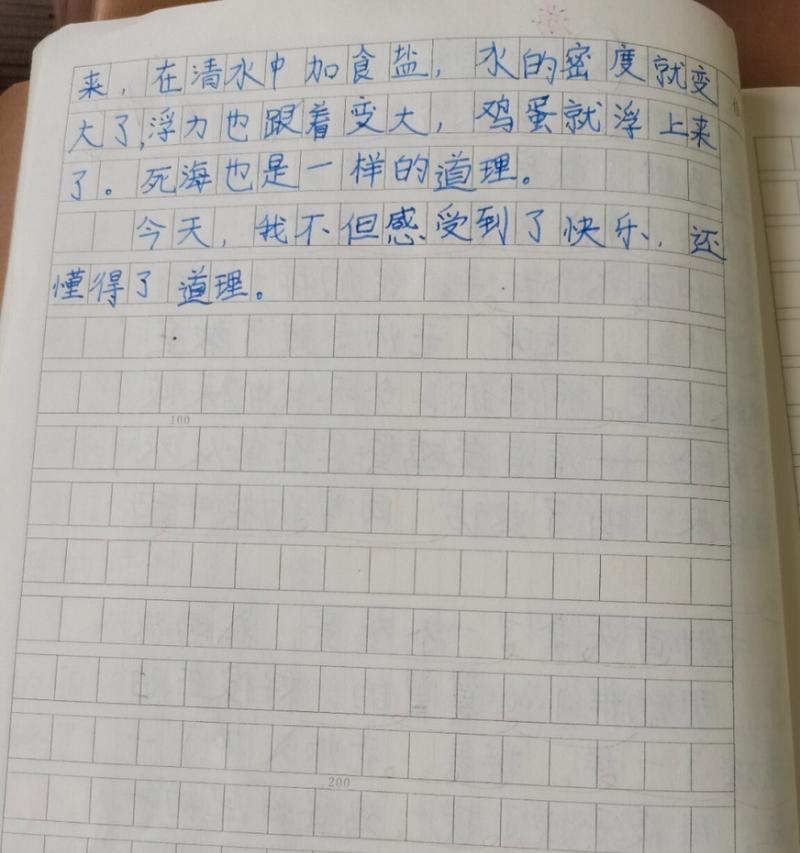 来，在清水中加食盐，水的密度就变
大了，浮力也跟着变大，鸡蛋就浮上来
了。死海也是一样的道理。
今天，我不但感受到了快乐，还
懂得了道理。
100
200